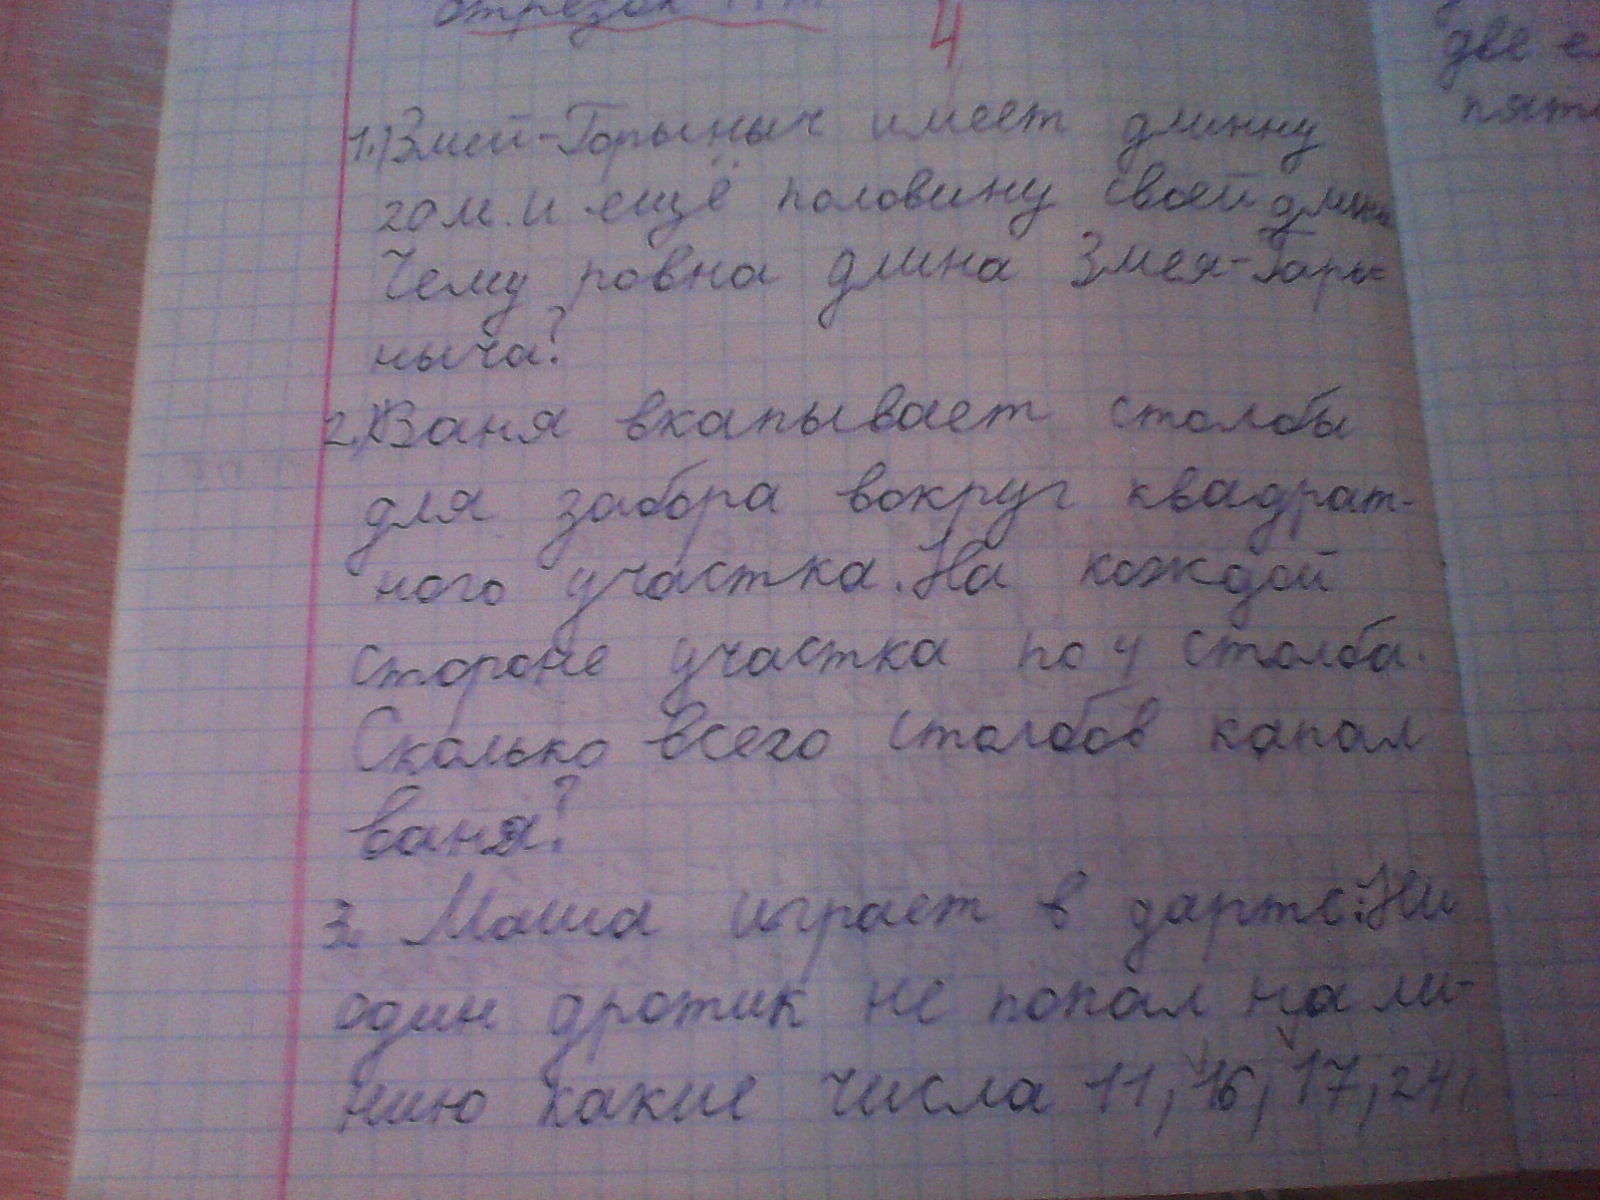 отрезок
4
1.) Змей-Горыныч имеет длинну
20 м. и ещё половину своей длины
Чему ровна длина Змея-Гары-
ныча?
2.) Ваня вкапывает столбы
для забора вокруг квадрат-
ного участка. На кождой
стороне участка по 4 столба.
Сколько всего столбов капал
ваня?
3. Маша играет в дартс. Ни
один дротик не попал на ли-
нию какие числа 11, 16, 17, 24,
две